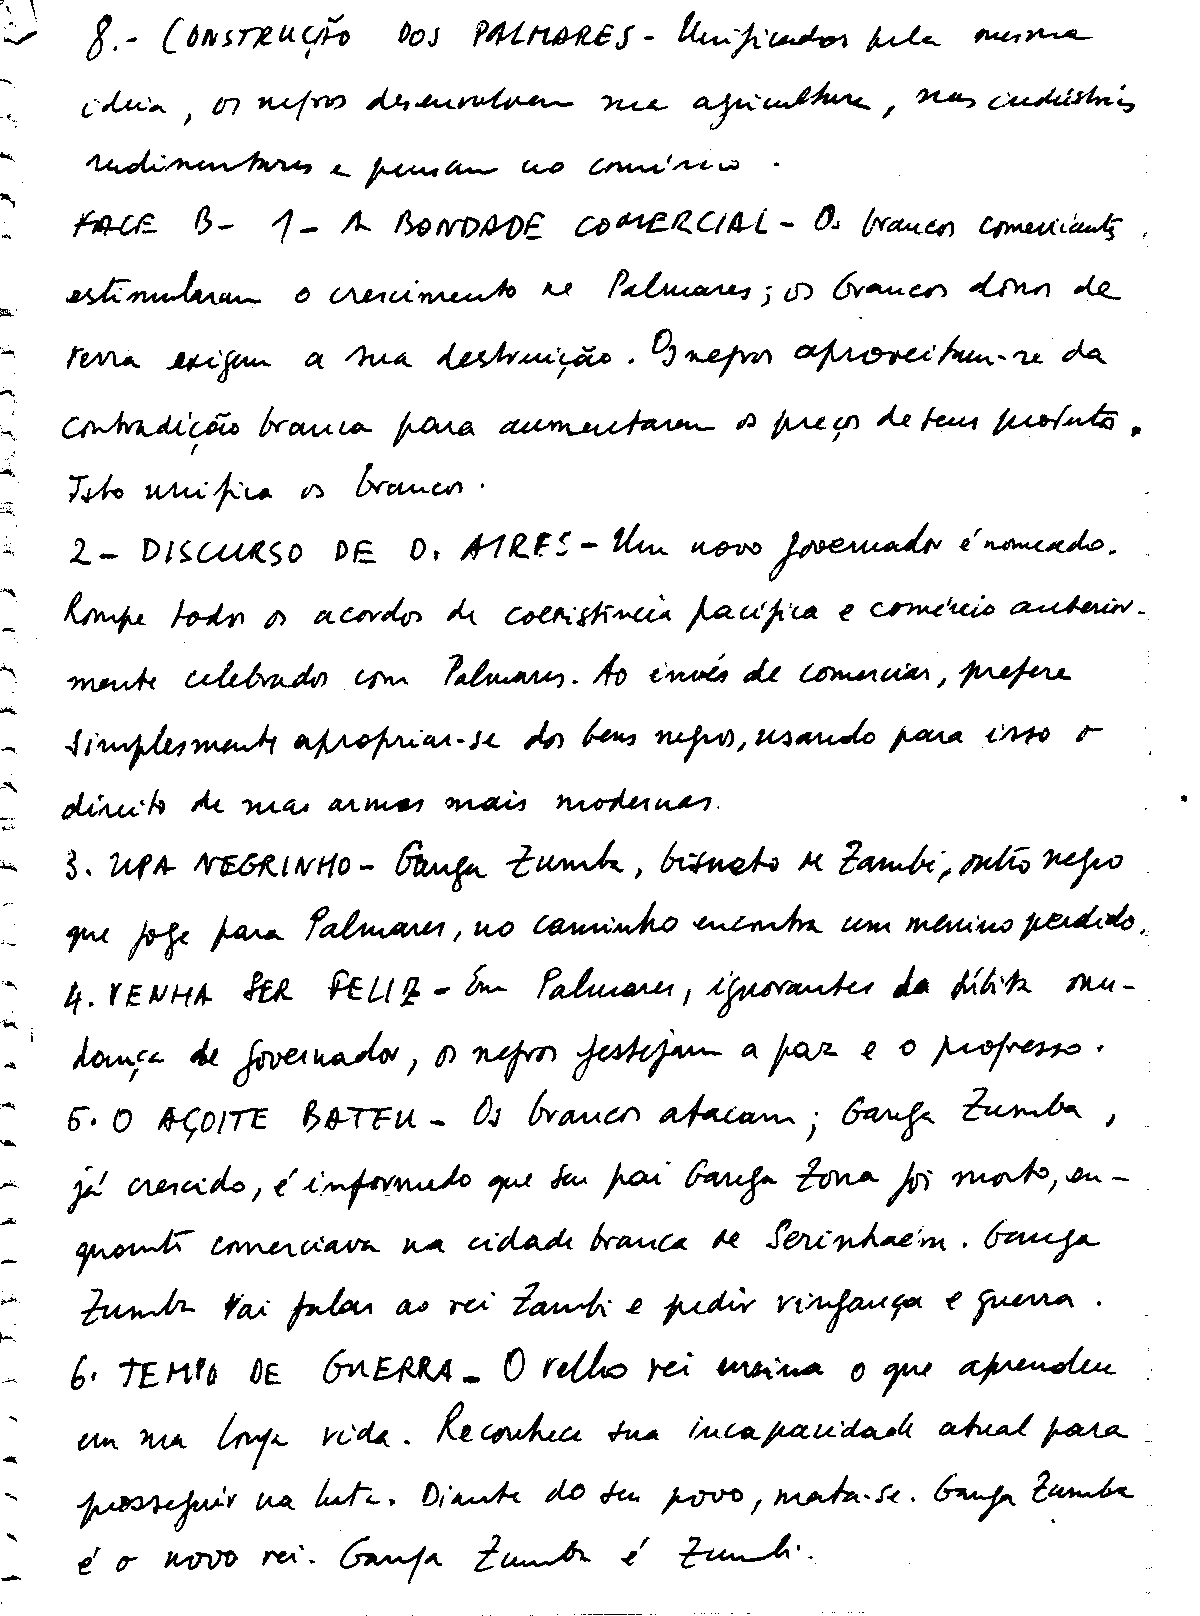 8.- CONSTRUÇÃO DOS PALMARES - Unificados pela mesma
ideia, os negros desenvolvem sua agricultura, suas indústrias
rudimentares e pensam no comércio.
FACE B - 1 - A BONDADE COMERCIAL - Os brancos comerciantes
estimularam o crescimento de Palmares; os brancos donos de
terra exigem a sua destruição. Os negros aproveitam-se da
contradição branca para aumentarem os preços de seus produtos.
Isto unifica os brancos.
2 - DISCURSO DE D. AIRES - Um novo governador é nomeado.
Rompe todos os acordos de coexistência pacífica e comércio anterior-
mente celebrados com Palmares. Ao invés de comerciar, prefere
simplesmente apropriar-se dos bens negros, usando para isso o
direito de suas armas mais modernas.
3. UPA NEGRINHO - Ganga Zumba, bisneto de Zambi, outro negro
que foge para Palmares, no caminho encontra um menino perdido.
4. VENHA SER FELIZ - Em Palmares, ignorantes da súbita mu-
dança de governador, os negros festejam a paz e o progresso.
5. O AÇOITE BATEU - Os brancos atacam; Ganga Zumba,
já crescido, é informado que seu pai Ganga Zona foi morto, en-
quanto comerciava na cidade branca de Serinhaém. Ganga
Zumba vai falar ao rei Zambi e pedir vingança e guerra.
6. TEMPO DE GUERRA - O velho rei ensina o que aprendeu
em sua longa vida. Reconhece sua incapacidade atual para
prosseguir na luta. Diante do seu povo, mata-se. Ganga Zumba
é o novo rei. Ganga Zumba é Zumbi.